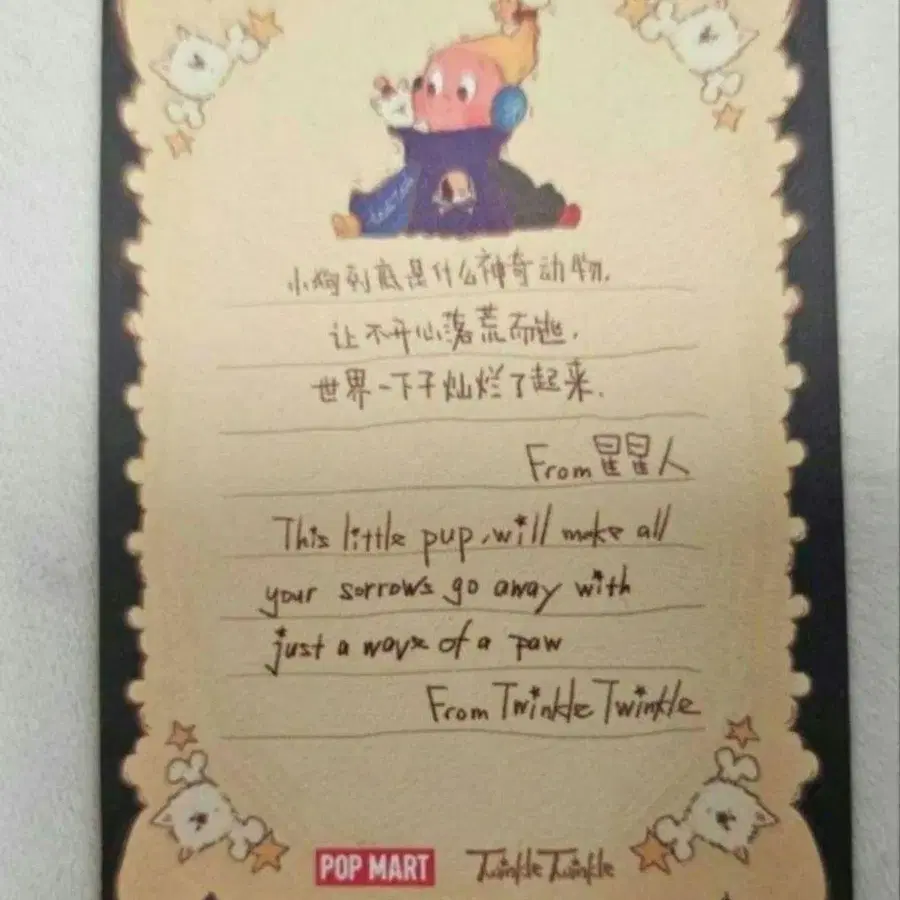 小狗到底是什么神奇动物,
让不开心落荒而逃,
世界一下子灿烂了起来.
From 星星人
This little pup, will make all
your sorrows go away with
just a wave of a paw
From Twinkle Twinkle
POP MART
Twinkle Twinkle